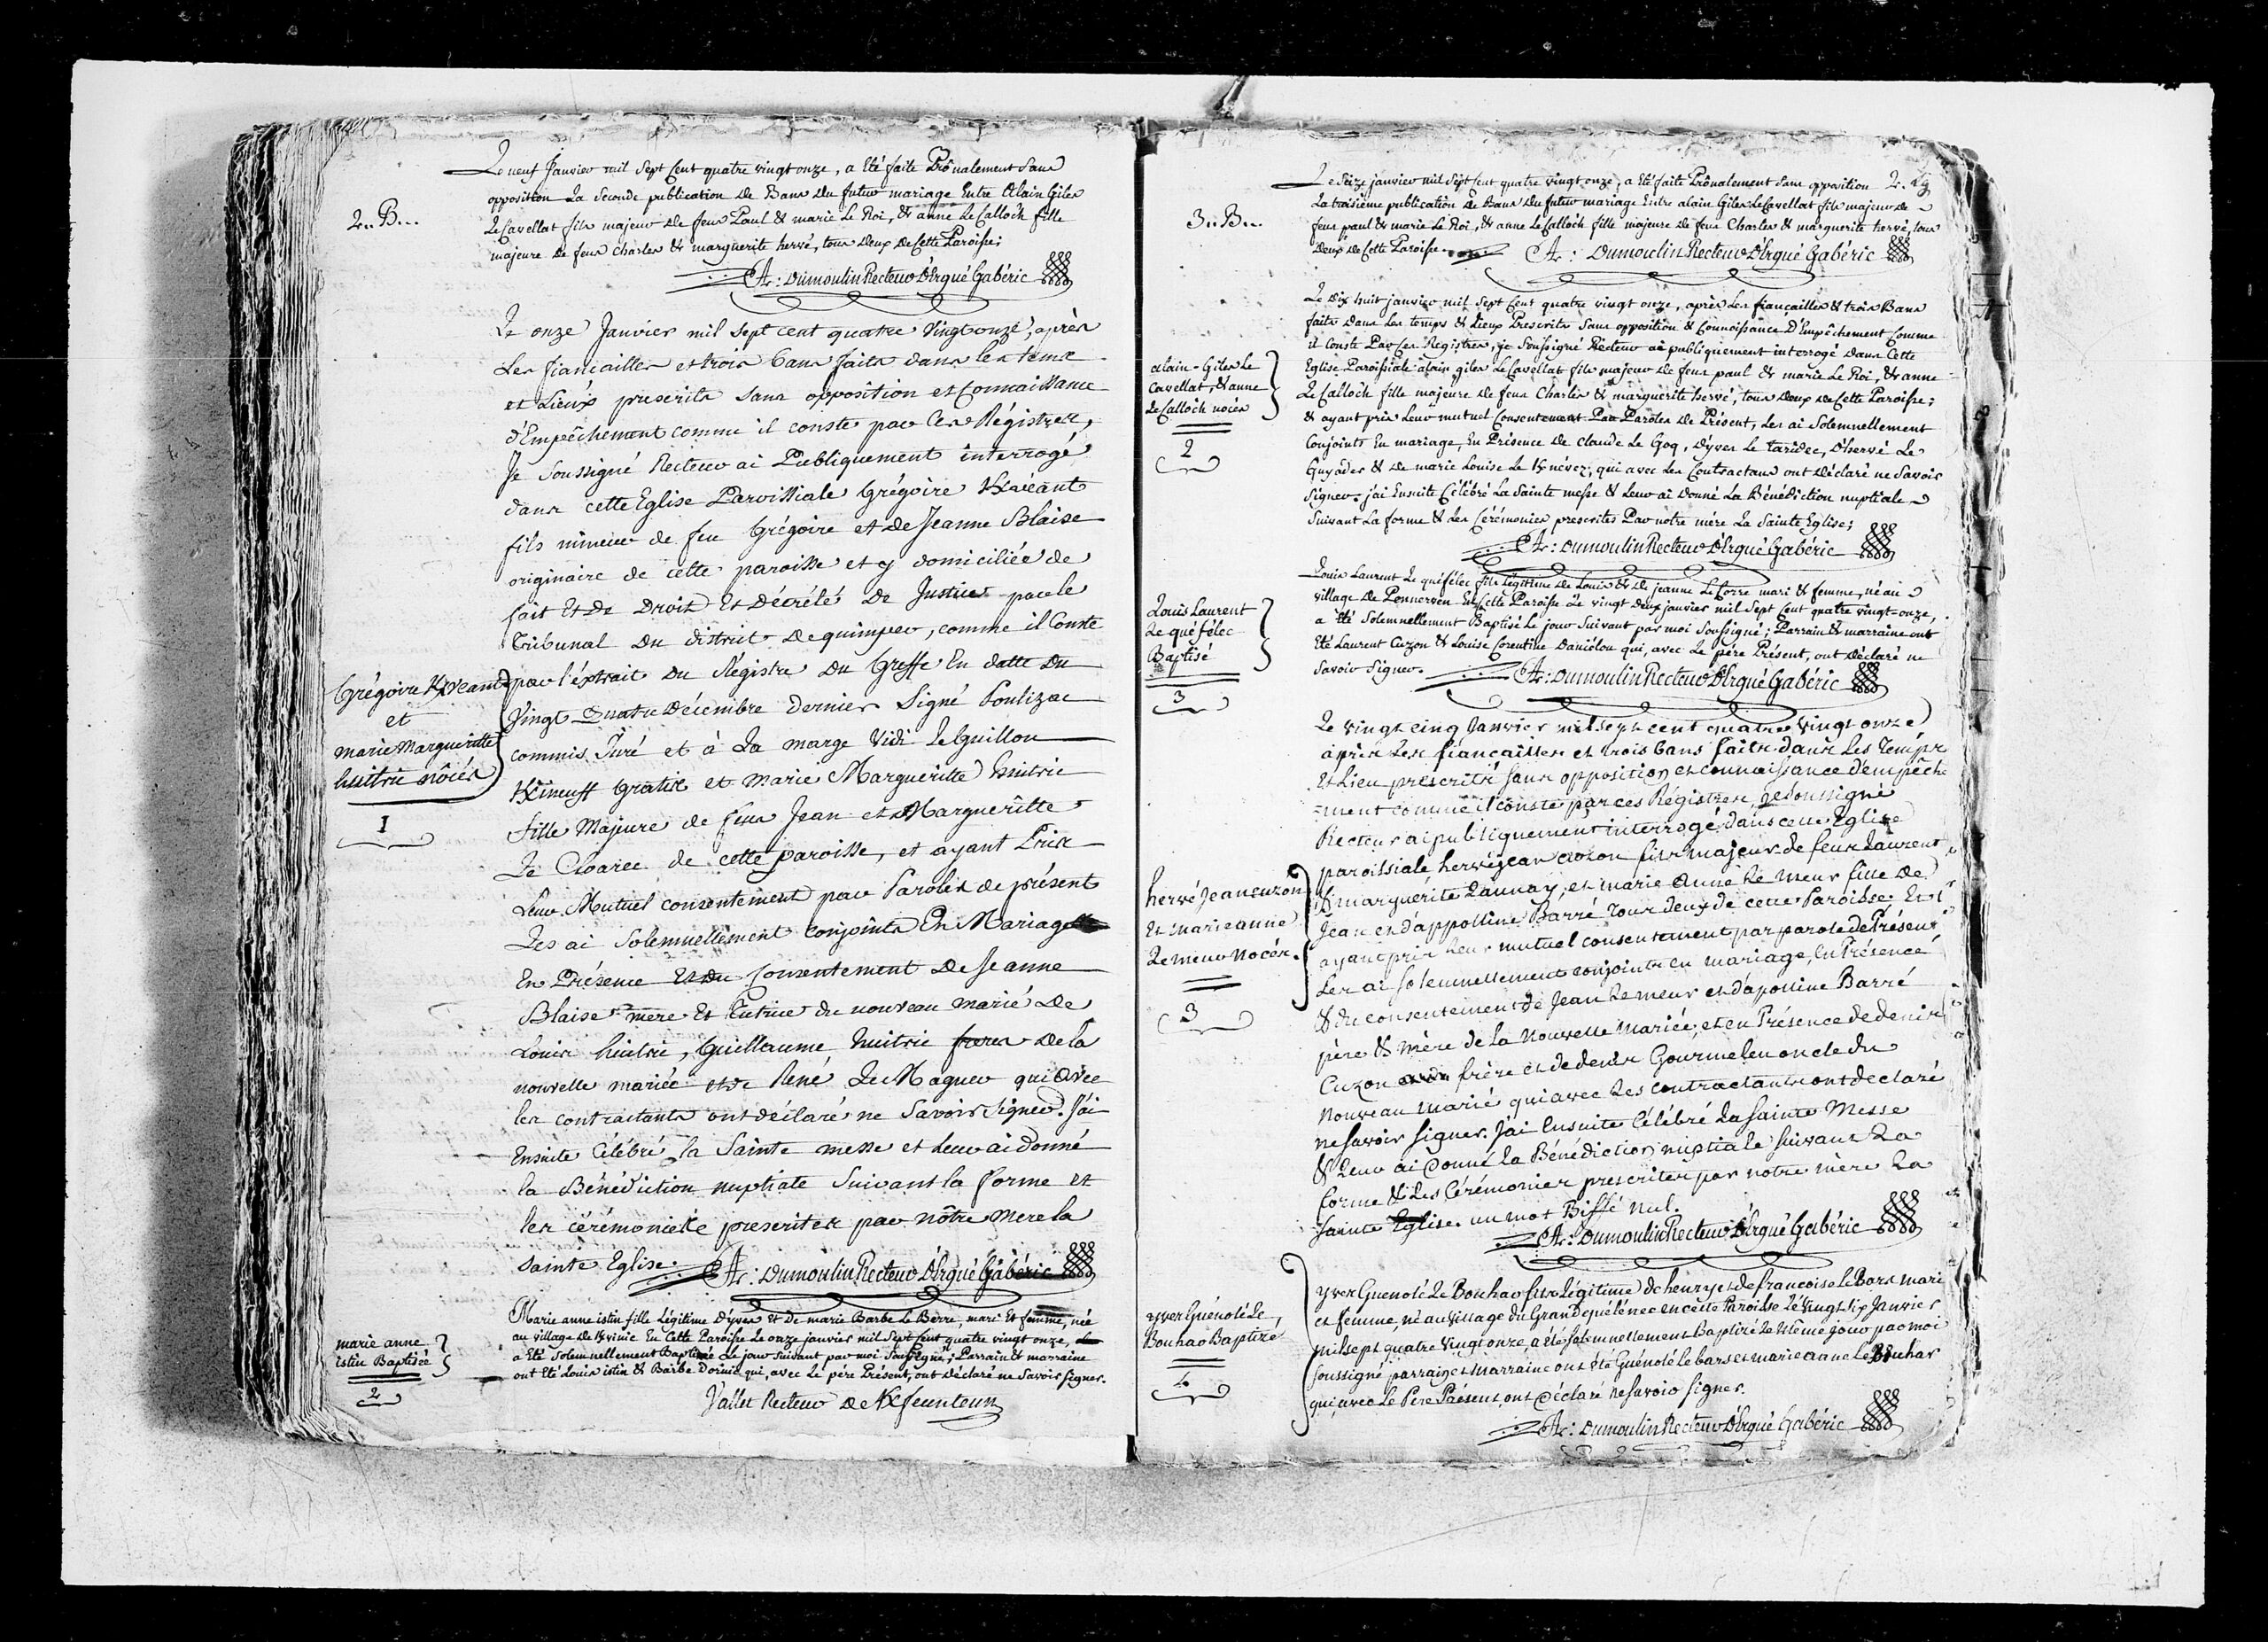 Le neuf Janvier mil Sept Cent quatre vingt onze, a Eté faite Prônalement Sans
opposition La Seconde publication De Bans Du futur mariage Entre Alain Giles
2.. B...
Le Cavellat fils majeur De feus Paul & marie Le Roi, & anne Le Calloch fille
majeure De feus Charles & marguerite hervé, tous Deux De Cette Paroisse;
A: Dumoulin Recteur D'Ergué Gabéric
Le onze Janvier mil Sept cent quatre Vingt onze, après
Les fiancailles et trois bans faits dans les tems
et Lieux prescrits Sans opposition et Connaissance
d'Empêchement comme il conste par Ces Régistres,
Je Soussigné Recteur ai Publiquement interrogé
dans cette Eglise Paroissiale Grégoire Kveant
fils mineur de feu Grégoire et de Jeanne Blaise
originaire de cette paroisse et y domiciliée de
fait Et De Droit Et Décrété De Justice par le
Tribunal Du district De quimper, comme il Conste
Grégoire Kveant
et
marie Margueritte
huitric nôces
1
par l'éxtrait Du Régistre Du Greffe En datte Du
Vingt Quatre Décembre dernier Signé Poulizac
commis Juré et à La marge Vidi Le Guillou
Kincuff Gratis et Marie Margueritte huitric
fille Majure de feus Jean et Margueritte
Le Cloarec de cette paroisse, et ayant Pris
Leur Mutuel consentement par Paroles de présent
Les ai Solemnellement conjoints En Mariage
En Présence Et Du Consentement De Jeanne
Blaise mere Et Tutrice du nouveau marié De
Louis huitric, Guillaume huitric freres De la
nouvelle mariée et de René Le Magueur qui avec
les contractants ont déclaré ne Savoir Signer. J'ai
Ensuite Célébré la Sainte messe et Leur ai donné
la Bénédiction nuptiale Suivant la forme et
les cérémonies prescrites par nôtre Mere la
Sainte Eglise.
A: Dumoulin Recteur D'Ergué Gabéric
marie anne
istin Baptisée
2
Marie anne istin fille Légitime D'yves & De marie Barbe Le Berre, mari Et femme, née
au village De Kvinic En Cette Paroisse Le onze janvier mil Sept Cent quatre vingt onze,
a Eté Solemnellement Baptisée Le jour Suivant par moi Soussigné; Parrain & marraine
ont Eté Louis istin & Barbe Dornic qui, avec Le père Présent, ont Déclaré ne Savoir Signer.
Vallet Recteur De Kfeunteun
Le Seize janvier mil Sept Cent quatre vingt onze, a Eté faite Prônalement Sans opposition
La troisieme publication De Bans Du futur mariage Entre alain Giles Le Cavellat fils majeur De
3.. B...
feus paul & marie Le Roi, & anne Le Calloch fille majeure De feus Charles & marguerite hervé, tous
Deux De Cette Paroisse.
A: Dumoulin Recteur D'Ergué Gabéric
Le Dix huit janvier mil Sept Cent quatre vingt onze, après Les fiançailles & trois Bans
faits Dans Les temps & Lieux Prescrits Sans opposition & Connoissance D'Empêchement Comme
il Conste Par Ces Registres, je Soussigné Recteur ai publiquement interrogé Dans Cette
alain-Giles Le
Cavellat, & anne
Le Calloch nôces
2
Eglise Paroissiale alain giles Le Cavellat fils majeur De feus paul & marie Le Roi, & anne
Le Calloch fille majeure De feus Charles & marguerite hervé, tous Deux De Cette Paroisse;
& ayant pris Leur mutuel Consentement Par Paroles De Présent, Les ai Solemnellement
Conjoints En mariage, En Présence De claude Le Goq, D'yves Le taridec, D'hervé Le
Guyader & De marie Louise Le Knévez; qui avec Les Contractans ont Déclaré ne Savoir
Signer. j'ai Ensuite Célébré La Sainte messe & Leur ai Donné La Bénédiction nuptiale
Suivant La forme & Les Cérémonies prescrites Par notre mére La Sainte Eglise;
A: Dumoulin Recteur D'Ergué Gabéric
Louis Laurent
Le quéfélec
Baptisé
3
Louis Laurent Le quéfélec fils Légitime De Louis & De jeanne Le Corre mari & femme, né au
village De Pennerven En Cette Paroisse Le vingt Deux janvier mil Sept Cent quatre vingt-onze,
a Eté Solemnellement Baptisé Le jour Suivant par moi Soussigné; Parrain & marraine ont
Eté Laurent Cuzon & Louise Corentine Daniélou qui, avec Le pére Présent, ont Déclaré ne
Savoir Signer.
A: Dumoulin Recteur D'Ergué Gabéric
Le Vingt cinq Janvier mil sept cent quatre Vingt onze
après Les fiançailles et trois bans faits dans les Temps
Et Lieu prescrits sans opposition et connaissance d'empêche
=ment comme il conste par ces Régistres, Je soussigné
Recteur ai publiquement interrogé dans cette Eglise
hervé Jean cuzon
Et marie anne
Le meur Noces.
3
paroissiale hervé jean cuzon fils majeur de feus Laurent
& marguerite Launay, et marie Anne Le meur fille de
Jean et d'appolline Barré Tous deux de cette Paroisse. Et
ayant pris Leur mutuel consentement par parole de Présent
Les ai solemnellement conjoints en mariage, En Présence
& du consentement de Jean Le meur et d'apolline Barré
père & mère de la Nouvelle mariée, et en Présence de denis
Cuzon frère et de denis Gourmelen oncle du
Nouveau marié qui avec Les contractants ont declaré
ne savoir signer. J'ai Ensuite Célébré La sainte Messe
& Leur ai Donné La Bénédiction nuptiale suivant La
forme & Les Cérémonies prescrites par notre mère La
Sainte Eglise. un mot Biffé Nul.
A: Dumoulin Recteur D'Ergué Gabéric
yves Guénolé Le
Bouhar Baptizé
4
yves Guenolé Le Bouhar fils Légitime de henry et de francoise Le Bars mari
et femme, né au Village du Grand quélénec en cette Paroisse Le Vingt six Janvier
mil sept quatre Vingt onze, a été solemnellement Baptizé Le Même jour par moi
soussigné parrain et Marraine ont été Guénolé le bars et marie anne Le Bouhar
qui, avec Le Père Présent, ont Déclaré ne savoir signer.
A: Dumoulin Recteur D'Ergué Gabéric